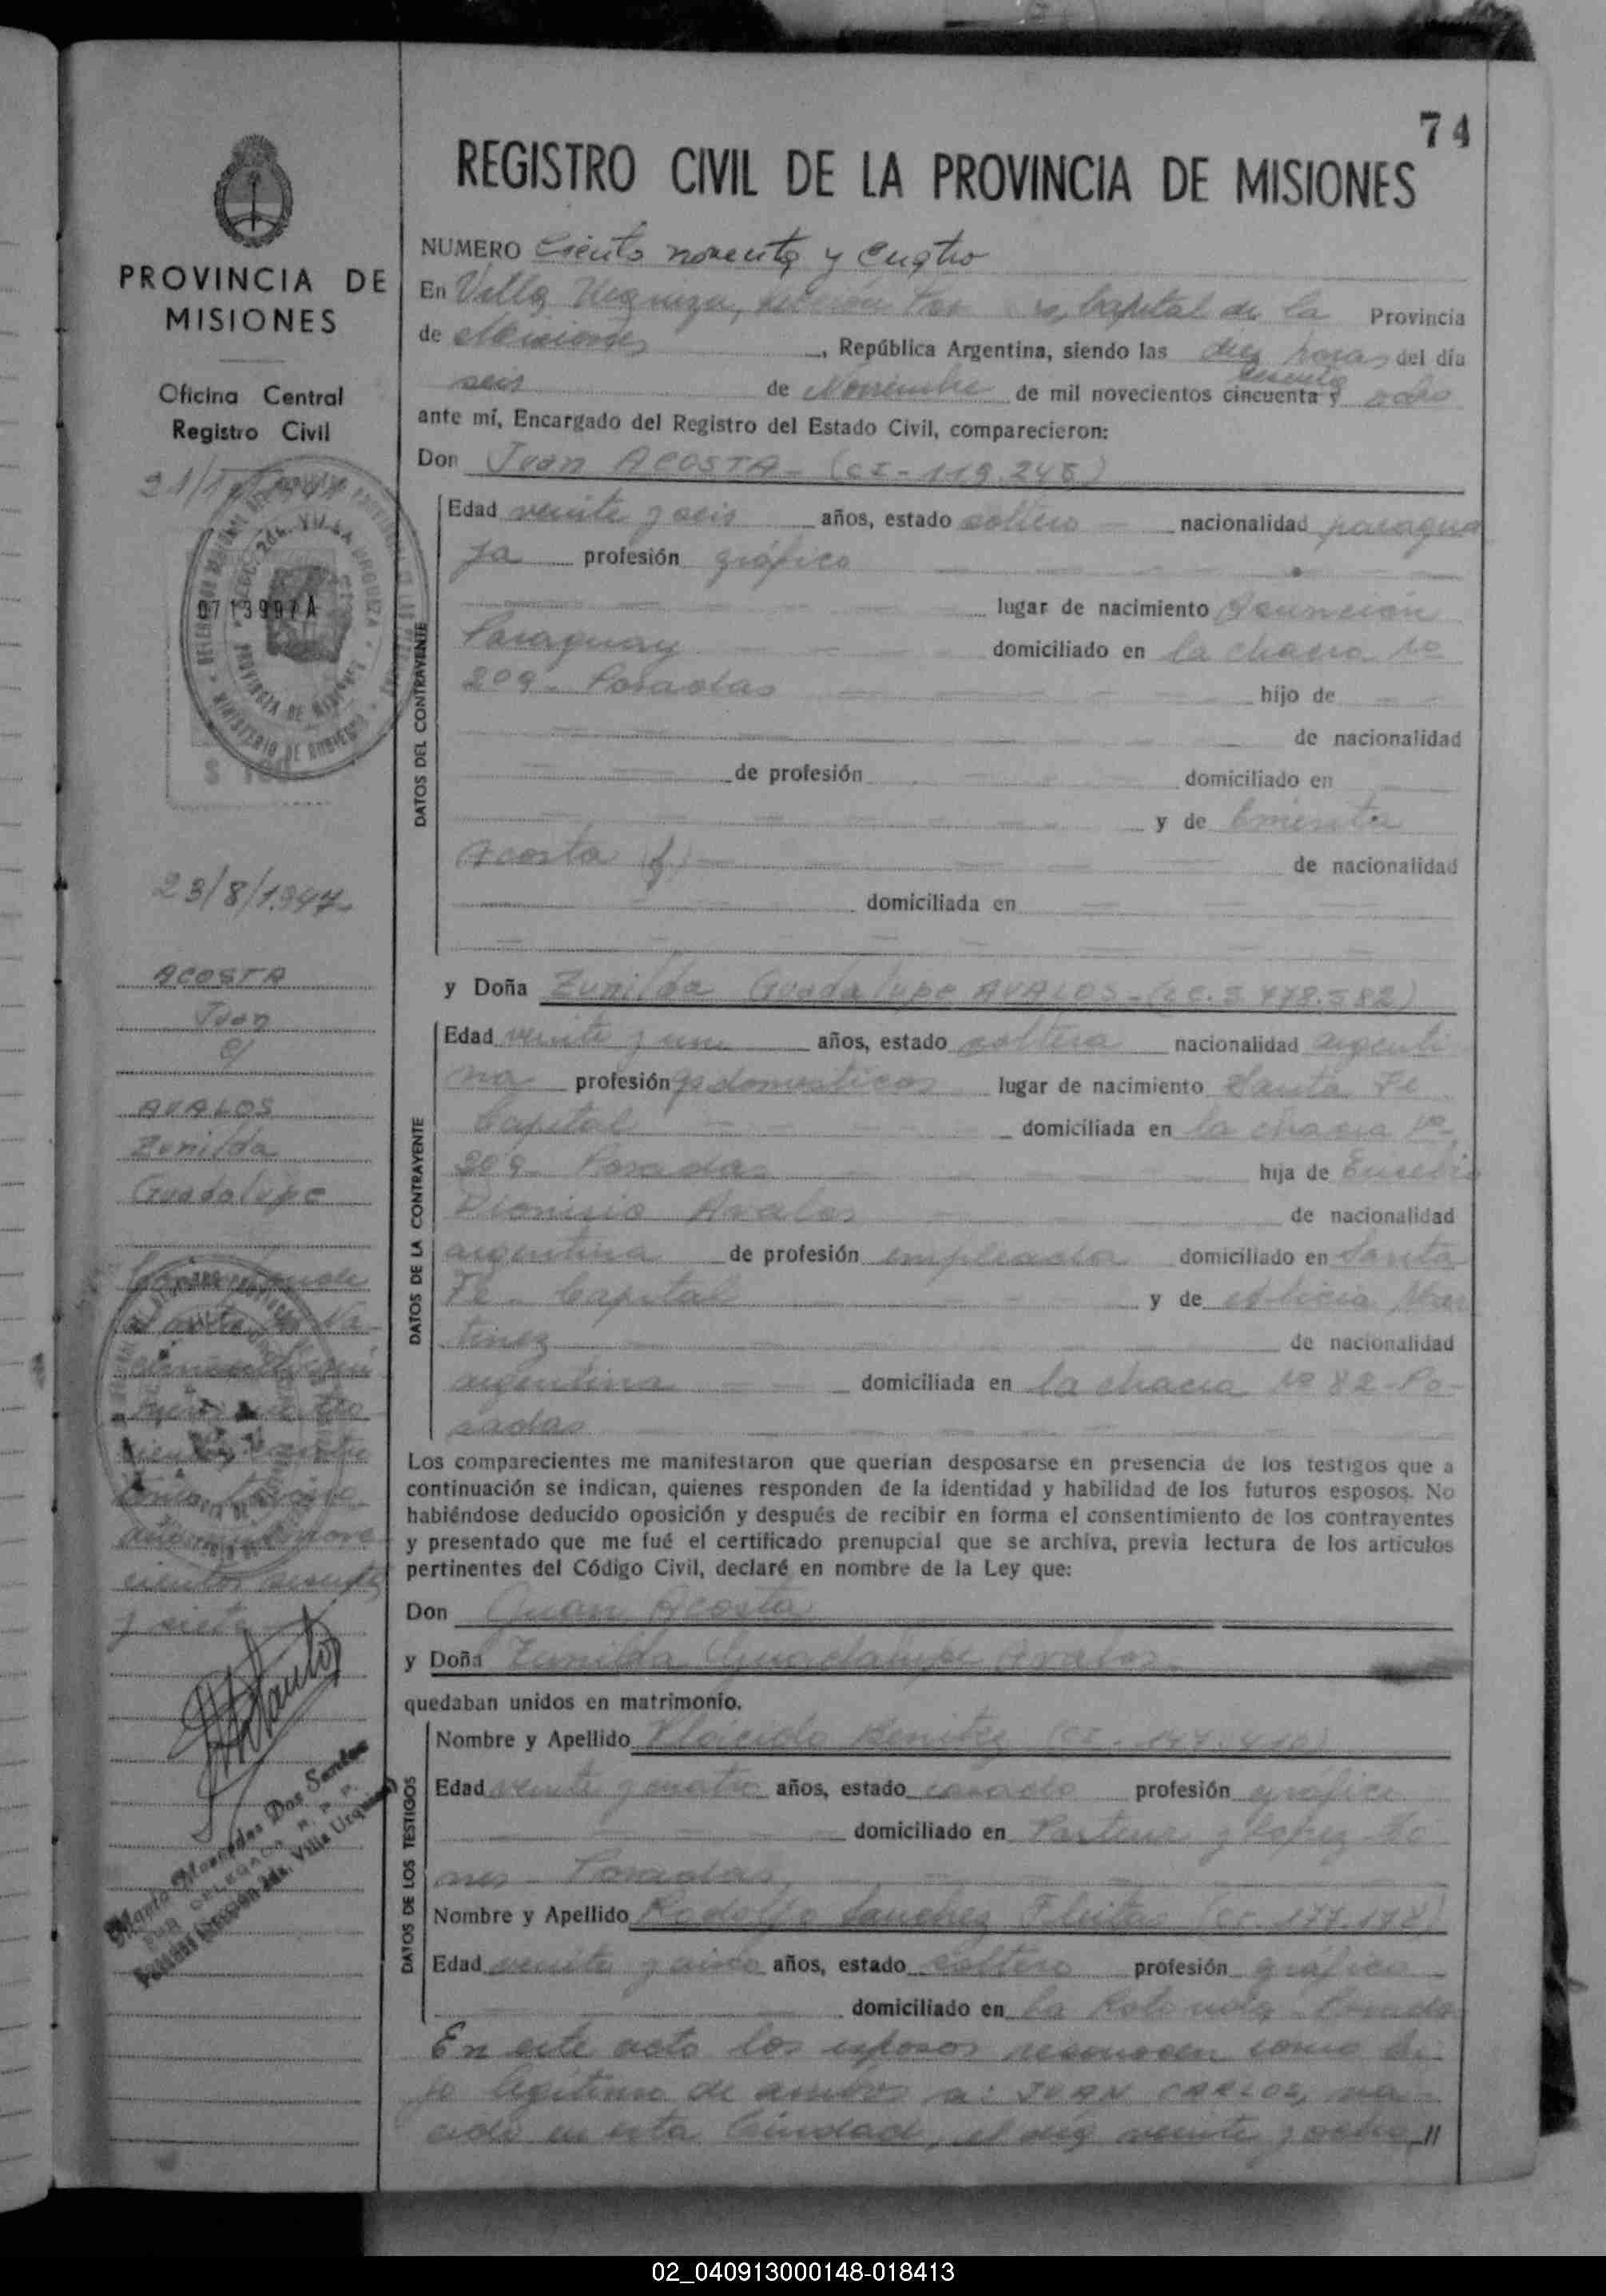 74
REGISTRO CIVIL DE LA PROVINCIA DE MISIONES
PROVINCIA DE
MISIONES
Oficina Central
Registro Civil
0713997A
23/8/1.947
ACOSTA
Juan
c/
AVALOS
Zunilda
Guadalupe
y siete
NUMERO Ciento noventa y cuatro
En Villa Urquiza, Capital de la Provincia
de Misiones, República Argentina, siendo las diez horas del día
seis de Noviembre de mil novecientos cincuenta y sesenta ocho
ante mí, Encargado del Registro del Estado Civil, comparecieron:
Don Juan ACOSTA - (CI - 119.248)
DATOS DEL CONTRAYENTE
Edad veinte y seis años, estado soltero nacionalidad paragua
ya profesión gráfico
lugar de nacimiento Asunción
Paraguay domiciliado en la chacra No
209 - Posadas hijo de
de nacionalidad
de profesión domiciliado en
y de Emerita
Acosta (f) de nacionalidad
domiciliada en
y Doña Zunilda Guadalupe AVALOS - (LC. 5.478.582)
DATOS DE LA CONTRAYENTE
Edad veinte y un años, estado soltera nacionalidad argenti
na profesión qs domesticos lugar de nacimiento Santa Fe
Capital domiciliada en la chacra No
209 - Posadas hija de Eusebio
Dionisio Avalos de nacionalidad
argentina de profesión empleado domiciliado en Santa
Fe - Capital y de Alicia Mar
tinez de nacionalidad
argentina domiciliada en la chacra No 82 - Po-
sadas
Los comparecientes me manifestaron que querían desposarse en presencia de los testigos que a
continuación se indican, quienes responden de la identidad y habilidad de los futuros esposos. No
habiéndose deducido oposición y después de recibir en forma el consentimiento de los contrayentes
y presentado que me fué el certificado prenupcial que se archiva, previa lectura de los artículos
pertinentes del Código Civil, declaré en nombre de la Ley que:
Don Juan Acosta
y Doña Zunilda Guadalupe Avalos
quedaban unidos en matrimonio.
DATOS DE LOS TESTIGOS
Nombre y Apellido Plácido Benitez (CI - 147.410)
Edad veinte y cuatro años, estado casado profesión gráfico
domiciliado en y Lopez To
rres - Posadas
Nombre y Apellido Rodolfo Sanchez Fleitas (CI. 177.178)
Edad veinte y cinco años, estado soltero profesión gráfico
domiciliado en La Rotonda - Posadas
En este acto los esposos reconocen como hi-
jo legítimo de ambos a: JUAN CARLOS, na-
cido en esta Ciudad, el día veinte y ocho //
02_040913000148-018413